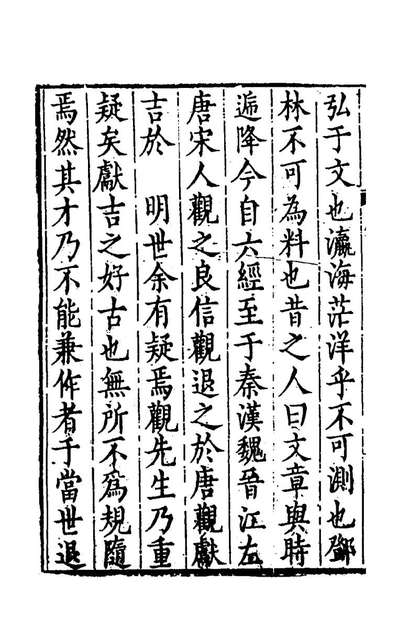 弘于文也瀛海茫洋乎不可測也鄧
林不可為料也昔之人曰文章與時
遞降今自六經至于秦漢魏晉江左
唐宋人觀之良信觀退之於唐觀獻
吉於　明世余有疑焉觀先生乃重
疑矣獻吉之好古也無所不為規隨
焉然其才乃不能兼作者于當世退